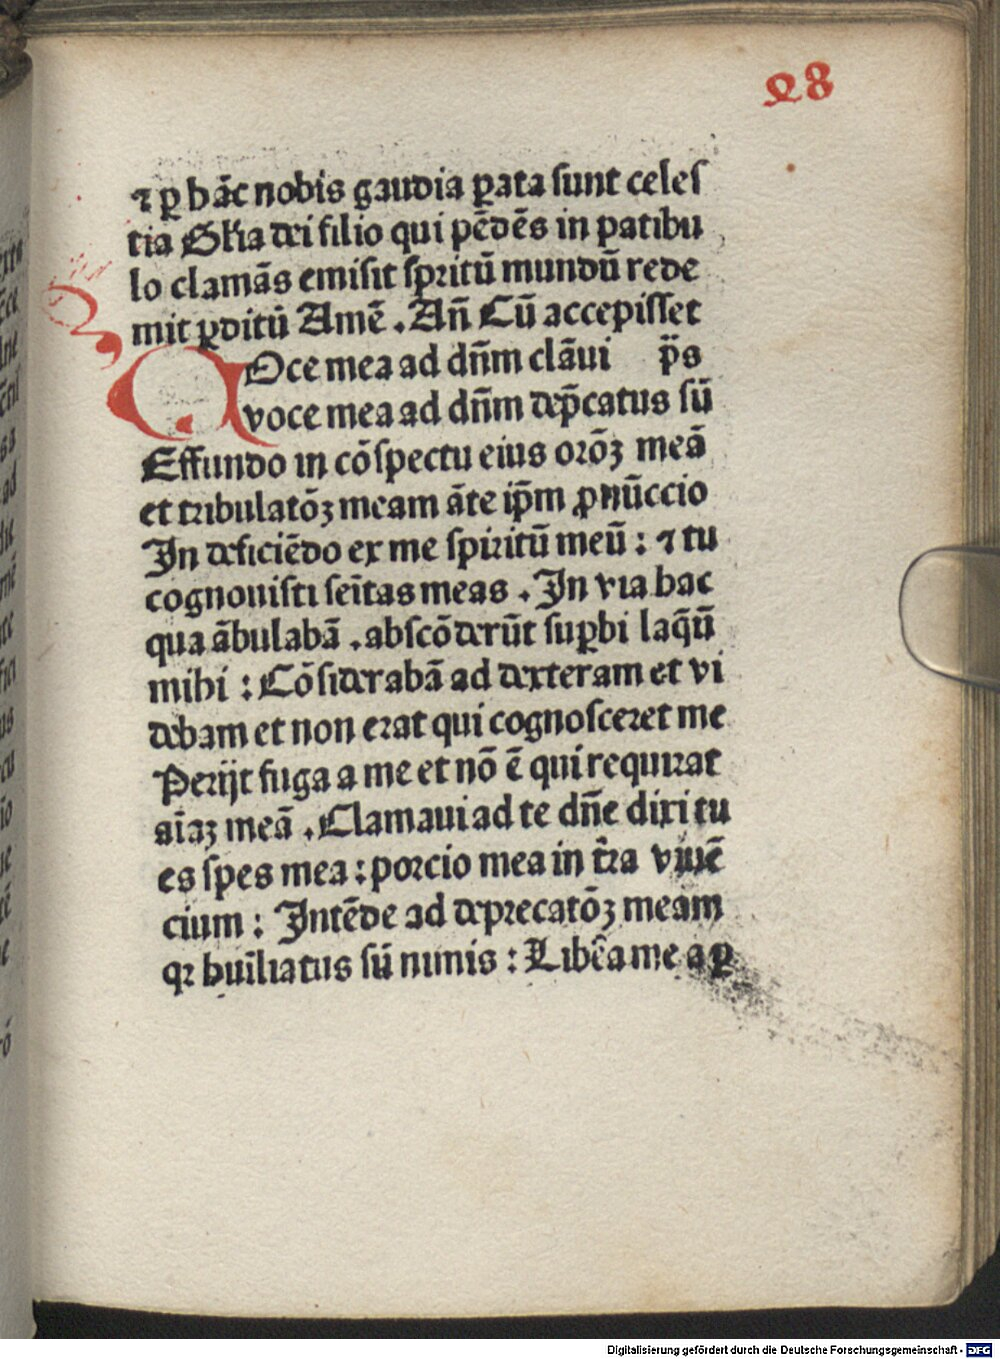 28
⁊ ꝑ hāc nobis gaudia ꝑata sunt celes
tia Gl'ia dei filio qui pēdēs in patibu
lo clamās emisit spritū mundū rede
mit ꝑditū Amē . An̄ Cū accepisset
VOce mea ad dn̄m clāui p̄s
voce mea ad dn̄m dep̄catus sū
Effundo in cōspectu eius orōꝫ meā
et tribulatōꝫ meam āte ip̄m ꝓnūccio
In deficiēdo ex me spiritū meū : ⁊ tu
cognouisti sei̅tas meas . In via hac
qua ābulabā . abscōderūt suꝑbi laq̄ū
mihi : Cōsiderabā ad dexteram et vi
debam et non erat qui cognosceret me
Perijt fuga a me et nō ē qui requirat
ai̅aꝫ meā . Clamaui ad te dn̄e dixi tu
es spes mea : porcio mea in t̄ra viuē
cium : Intēde ad deprecatōꝫ meam
qꝛ hui̅liatus sū nimis : Lib̄a me a ꝑ
Digitalisierung gefördert durch die Deutsche Forschungsgemeinschaft - DFG